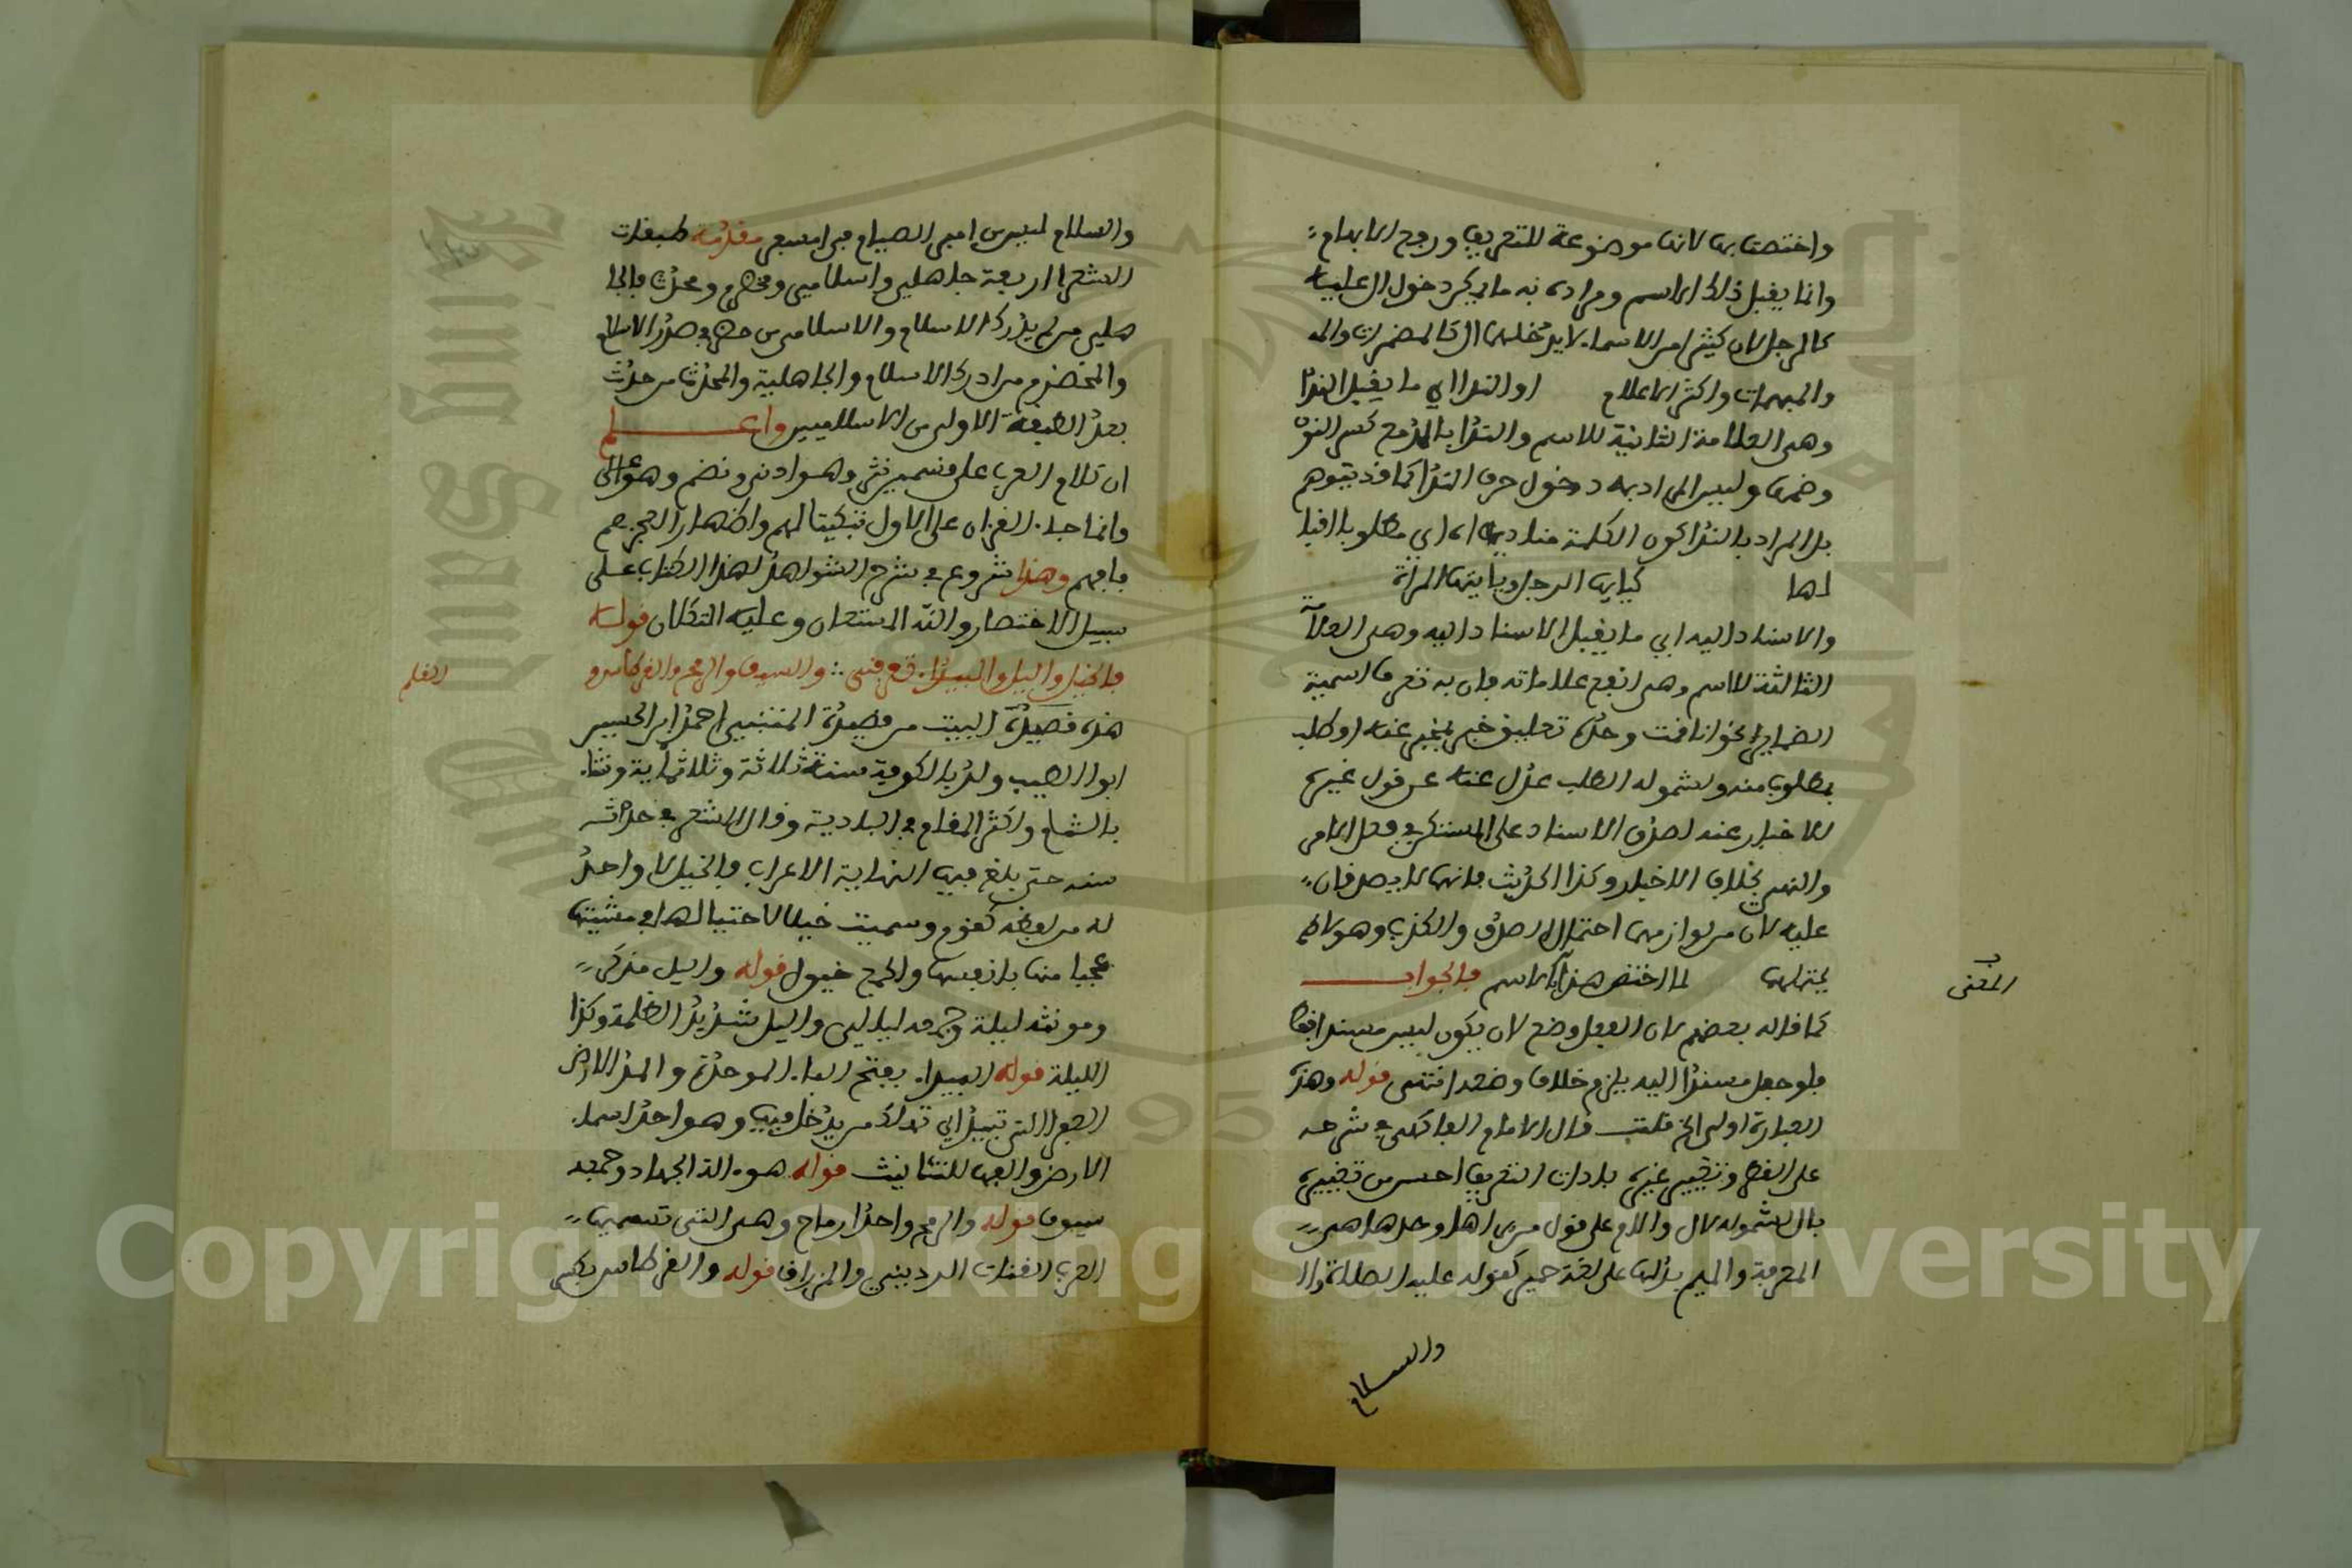 واختصتا بها لانها موضوعة للتعريف ورفع الابهام
وانما يقبل ذلك الاسم ومراده به ما يمكن دخول ال عليه
كالرجل لان كثيرا من الاسماء لا يدخلها ال كالمضمرات والمه
والمبهمات واكثر الاعلام او الندا اي ما يقبل الندا
وهي العلامة الثانية للاسم والندا بالمد مع كسر النون
وضمها وليس المراد به دخول حرف الندا كما قد يتوهم
بل المراد بالندا كون الكلمة مناداة اي مطلوبا اقبا
لها كيايها الرجل ويا ايتها المرأة
والاسناد اليه اي ما يقبل الاسناد اليه وهي العلا
الثالثة للاسم وهي انفع علاماته فان به تعرف اسمية
الضماير نحو انا قمت وحده تعليق خبر بمخبر عنه او طلب
بمطلوب منه ولشموله الطلب عدل عنه عن قول غيره
للاخبار عنه لصدق الاسناد على المستكن في فعل الامر
والنهي بخلاف الاخبار وكذا الحديث فانهما لا يصدقان
عليه لان من لوازمهما احتمال الصدق والكذب وهو لا
يحتملهما لما اختص هذا بالاسم فالجواب
المغنى
كما قاله بعضهم لان الفعل وضع لان يكون ليس مسندا فقط
فلو جعل مسندا اليه يلزم خلاف وضعه انتهى قوله وهذه
العبارة اولى الخ قلت قال الامام الفاكهي في شرحه
على القطر وتعبير غيره باداة التعريف احسن من تعبيره
بال لشموله لال واللام على قول من يراها وحدها هي
المعرفة والميم بدلها على لغة حمير كقوله عليه الصلاة وال
والسلام
والسلام ليس من امبر امصيام في امسفر مقدمة طبقات
الشعرا اربعة جاهلين واسلاميين ومخضرم ومحدث فالجا
هلين من لم يدرك الاسلام والاسلاميين من في صدر الاسلام
والمخضرم من ادرك الاسلام والجاهلية والمحدث من حدث
بعد الطبقة الاولى من الاسلاميين واعلم
ان كلام العرب على قسمين نثر وهو ادنى ونضم وهو اعلى
وانما جاء القران على الاول تبكيتا لهم واظهار العجزهم
فافهم وهذا شروع في شرح الشواهد لهذا الكتاب على
سبيل الاختصار والله المستعان وعليه التكلان قوله
فالخيل والليل والبيداء تعرفني والسيف والرمح والقرطاس و
القلم
هذه قصيدة البيت من قصيدة المتنبي احمد بن الحسين
ابو الطيب ولد بالكوفة سنة ثلاثة وثلاثماية ونشا
بالشام واكثر المقام في البادية وقال الشعر في حداثه
سنه حتى بلغ فيه النهاية الاعراب فالخيل لا واحد
له من لفظه كقوم وسميت خيلا لاختيالها في مشيتها
عجبا منها بانفسها والجمع خيول قوله والليل مذكر
ومونثه ليلة وجمعه ليالي وليل شديد الظلمة وكذا
الليلة قوله البيداء بفتح الباء الموحدة والمد الارض
القفر التي تبيد اي تهلك من يدخل فيها وهو احد اسماء
الارض والفها للتانيث قوله هو الة الجهاد وجمعه
سيوف قوله والرمح واحد ارماح وهي التي تسميها
العرب القناة الرديني والمزراق قوله والقرطاس بكسر